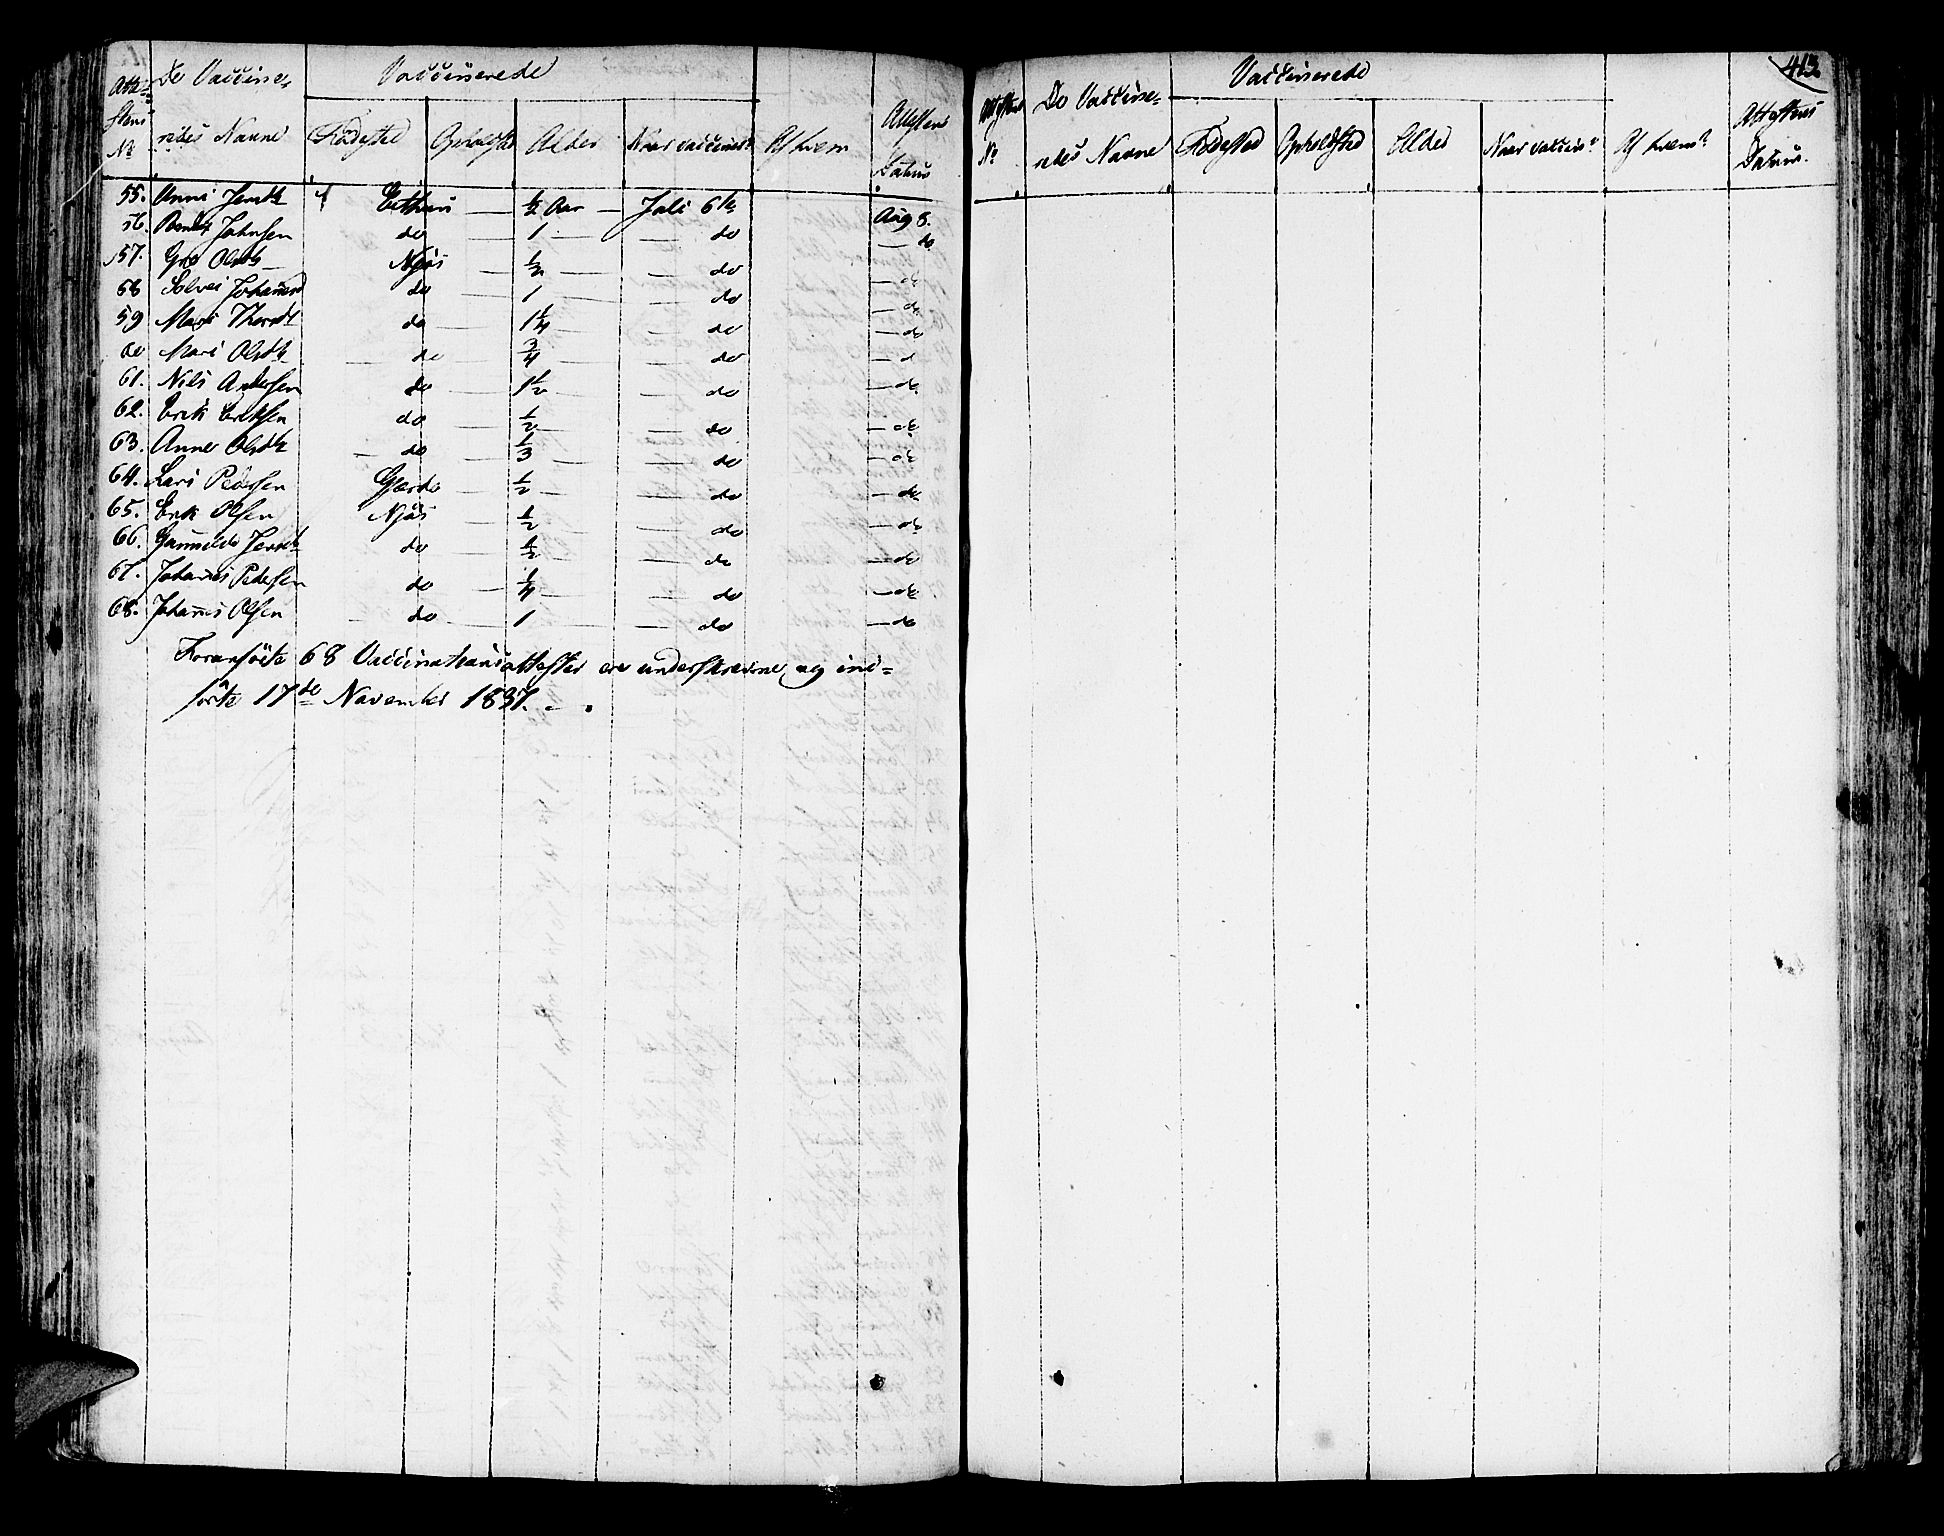 De Vaccine- Vaccinerede
Attestens No redes Navne Fødested Opholdsted Alder Naar vaccineret Af hvem Attestens Datum
55. Anne Jensdtr Eithun ½ Aar Juli 6te Aug 8.
56. Johnsen do 1 do do
57. Gro Olsdtr Njøs ½ do do
58 Solvei do 1 do do
59 Mari do 1¼ do do
60 Mari Olsdtr do ¾ do do
61. Nils Andersen do 1½ do do
62. Erik Eriksen do ½ do do
63. Anne Olsdtr do ⅓ do do
64. Lars Pedersen Gjerde ½ do do
65. Erik Olsen Njøs ½ do do
66. Gunnilde do ½ do do
67. Johannes Pedersen do ¼ do do
68. Johannes Olsen do 1 do do
Foranførte 68 Vaccinationsattester ere underskrevne og ind-
førte 17de November 1837.
413
De Vaccine- Vaccinerede
Attestens No redes Navne Fødested Opholdsted Alder Naar vaccinr Af hvem? Attestens Datum.